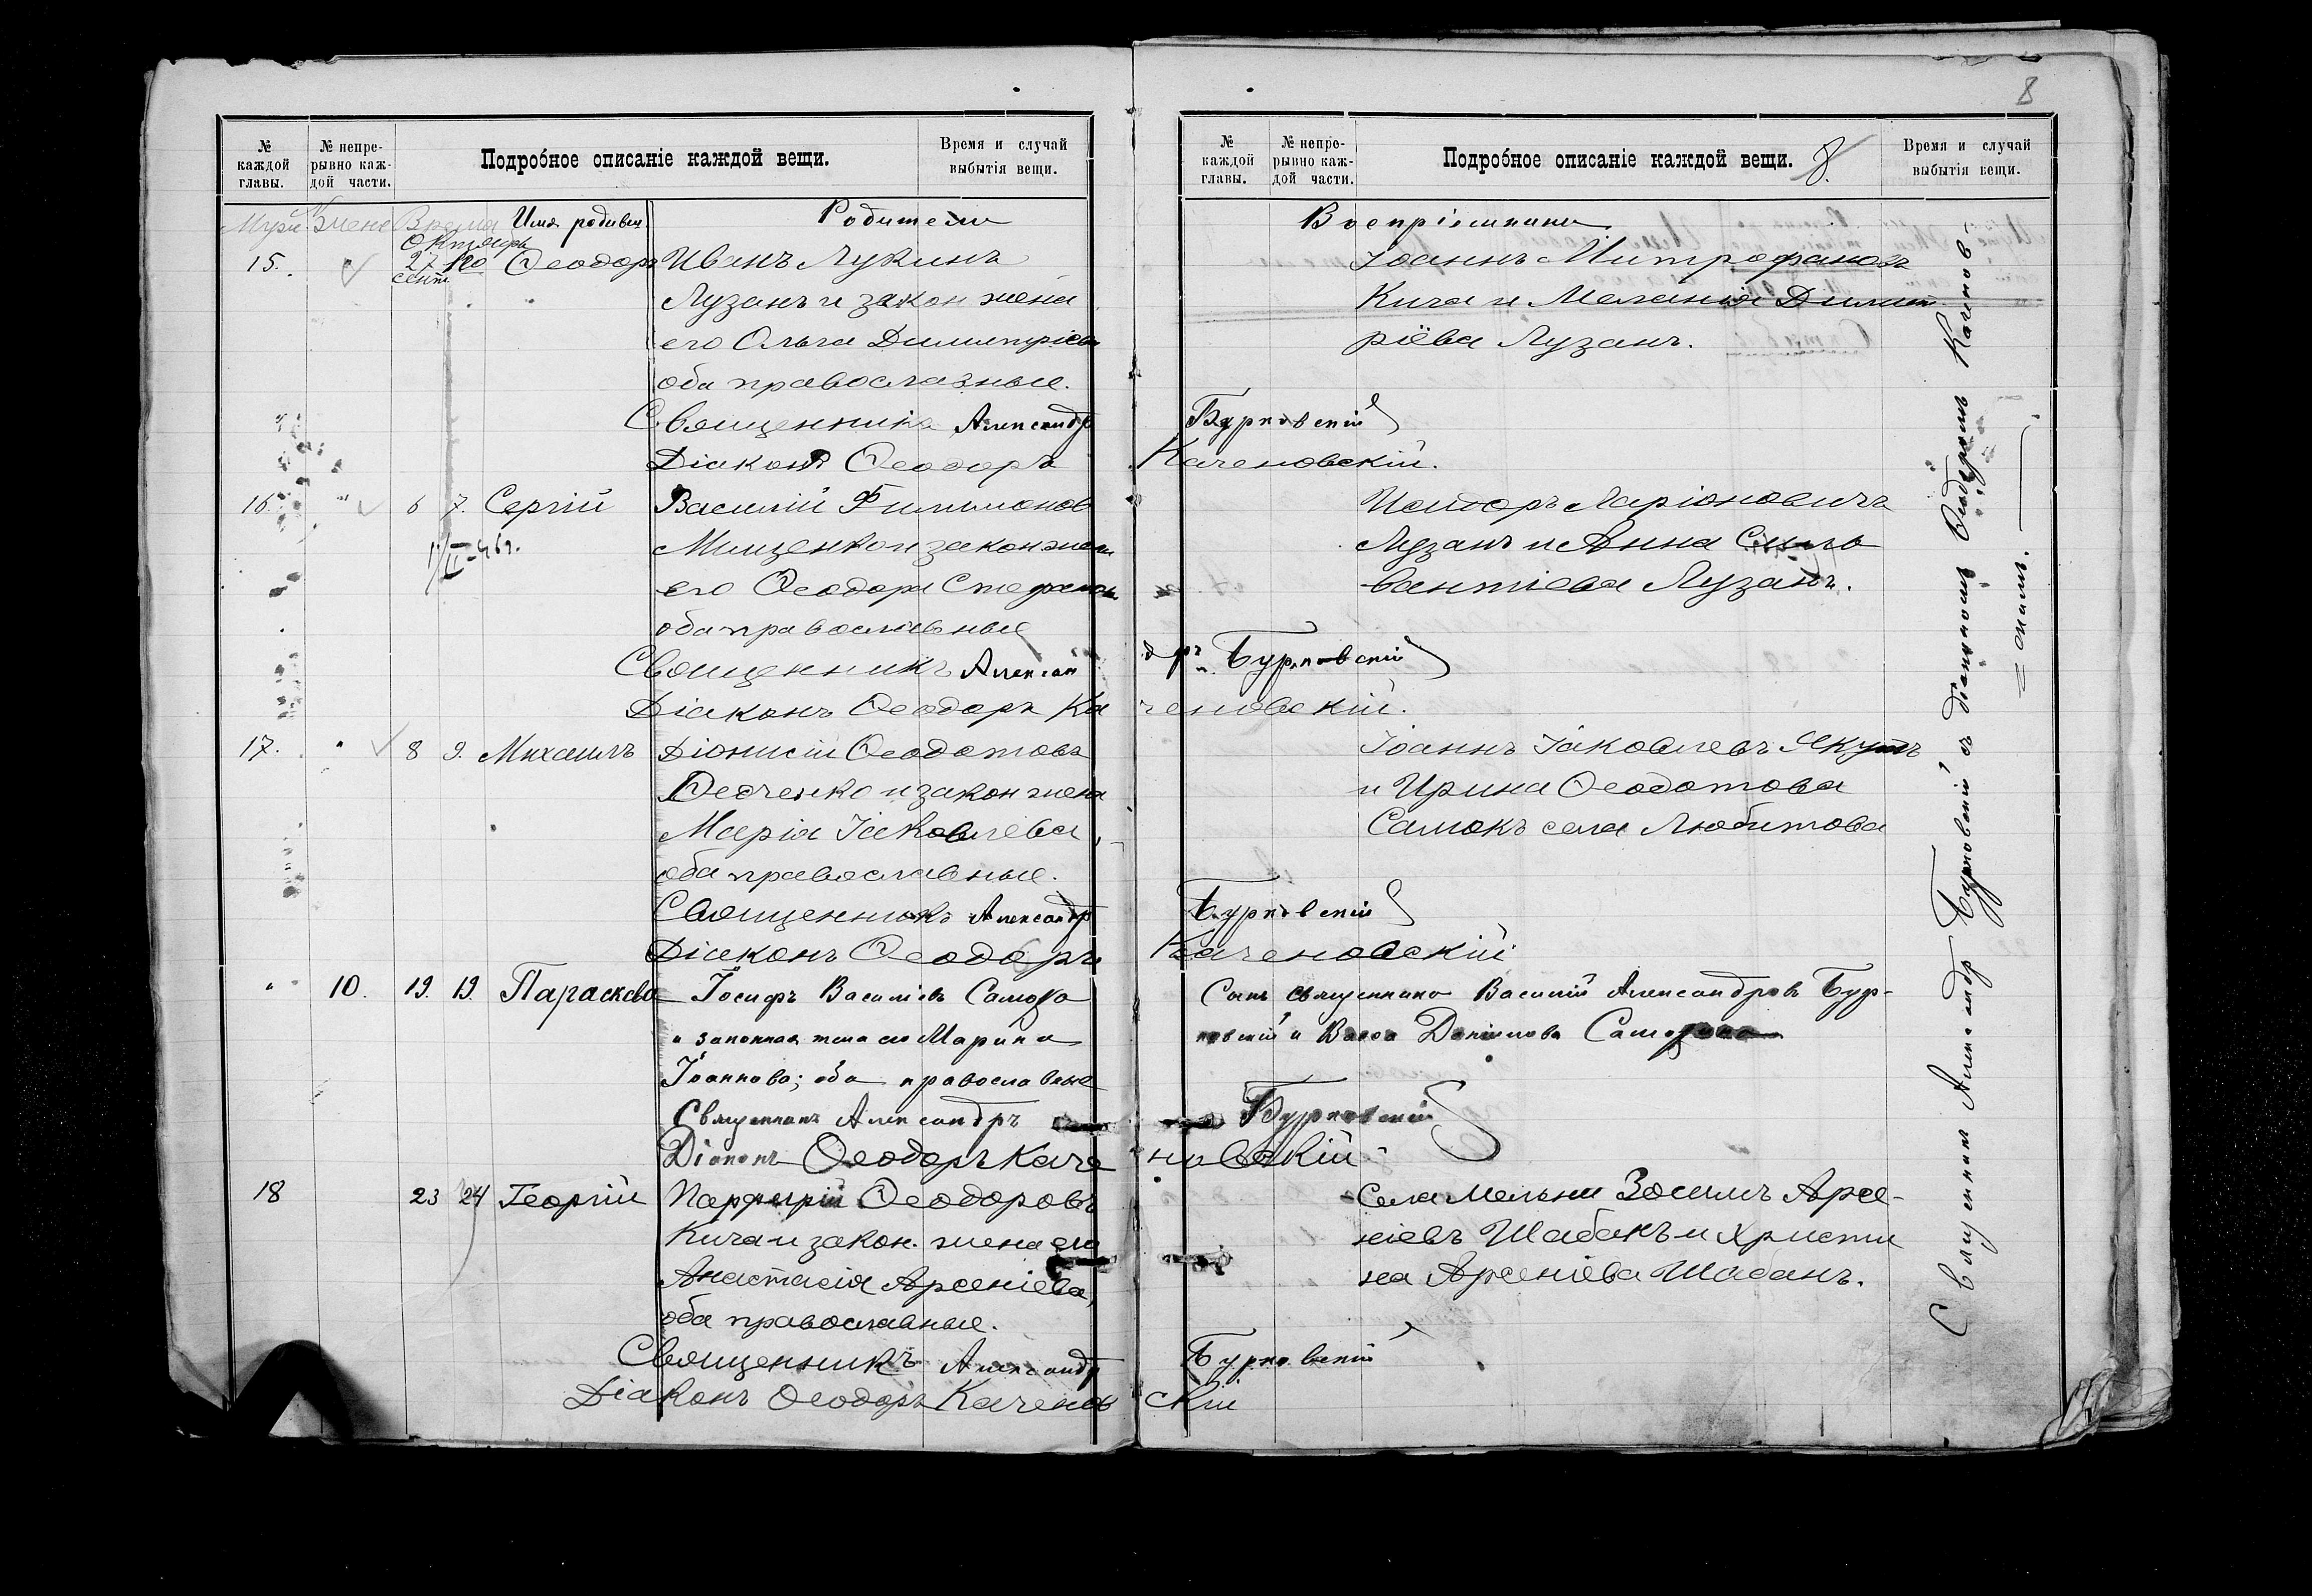 8
№ каждой главы.
№ непре-рывно каж-дой части.
Подробное описаніе каждой вещи.
Время и случай выбытія вещи.
Муж Жен Время Имя родивш. Родители
Октября
15. 27 сент Ѳеодоръ Иванъ Лукинъ
Лузанъ и закон жена
его Ольга Димитріева
оба православные.
Священникъ Александръ
Діаконъ Ѳеодоръ
16. " 6 7. Сергій Василій Филимонов
Мищенко и закон жена
его Ѳеодора Стефанов
оба православные
Священникъ Алексан
Діаконъ Ѳеодоръ Ка
17. " 8 9. Михаилъ Діонисій Ѳеодотовъ
и закон жена
Марія Іаковлева,
оба православные.
Священникъ Александръ
Діаконъ Ѳеодоръ
" 10. 19. 19. Параскева Іосифъ Василіевъ
и законная жена его Марина
Іоаннова; оба православные
Священникъ Александръ
Діаконъ Ѳеодоръ Каче
18 23 24 Георгій Парфирій Ѳеодоровъ
Кича и закон. жена его
Анастасія Арсеніева,
оба православные.
Священникъ Александр
Діаконъ Ѳеодоръ Каченов
№ каждой главы.
№ непре-рывно каж-дой части.
Подробное описаніе каждой вещи. 8.
Время и случай выбытія вещи.
Воспріемники
Іоаннъ Митрофановъ
Кича и Меланія Димит
ріева Лузанъ.
Бурковскій
Каченовскій.
Ларіоновичъ
Лузанъ и Анна Силь
вантіева Лузанъ.
дръ Бурковскій
ченовскій.
Іоаннъ Іаковлевъ Якутъ
и Ирина Ѳеодотова
Самокъ села Любитова
Бурковскій
Каченовскій
Сынъ священника Василій Александровъ Бур-
ковскій и Васса Даніилова
Бурковскій
новскій
Села Мельни Зосимъ Арсе-
ніевъ Шабанъ и Христи
на Арсеніева Шабанъ.
Бурковскій
скій
Священникъ Александр Бурковскій съ діакономъ Ѳеодоромъ Каченов-
=скимъ.